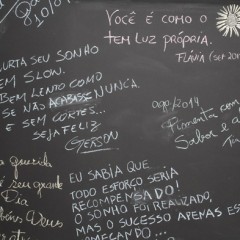 10/0
VOCÊ É COMO O
TEM LUZ PRÓPRIA.
FLÁVIA (set 201
CURTA SEU SONHO
EM SLOW.
BEM LENTO COMO
SE NÃO ACABASSE NUNCA.
E SEM CORTES...
SEJA FELIZ
GERSON
ago/2014
Pimenta com
Sabor e a
querida
seu grande
Dia
Deus
EU SABIA QUE...
TODO ESFORÇO SERIA
RECOMPENSADO!
O SONHO FOI REALIZADO,
MAS O SUCESSO APENAS ES
COMEÇANDO...